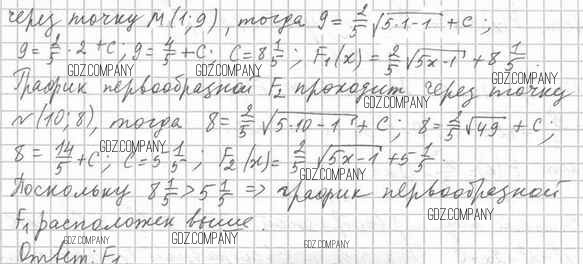 через точку M(1; 9), тогда 9 = 2/5 √(5·1-1) + C;
9 = 2/5 · 2 + C; 9 = 4/5 + C. C = 8 1/5; F₁(x) = 2/5 √(5x-1) + 8 1/5.
GDZ.COMPANY GDZ.COMPANY GDZ.COMPANY
График первообразной F₂ проходит через точку
GDZ.COMPANY
N(10; 8), тогда 8 = 2/5 √(5·10-1) + C; 8 = 2/5 √49 + C;
8 = 14/5 + C; C = 5 1/5; F₂(x) = 2/5 √(5x-1) + 5 1/5.
GDZ.COMPANY GDZ.COMPANY
Поскольку 8 1/5 > 5 1/5 => график первообразной
GDZ.COMPANY
F₁ расположен выше.
GDZ.COMPANY GDZ.COMPANY GDZ.COMPANY
Ответ: F₁